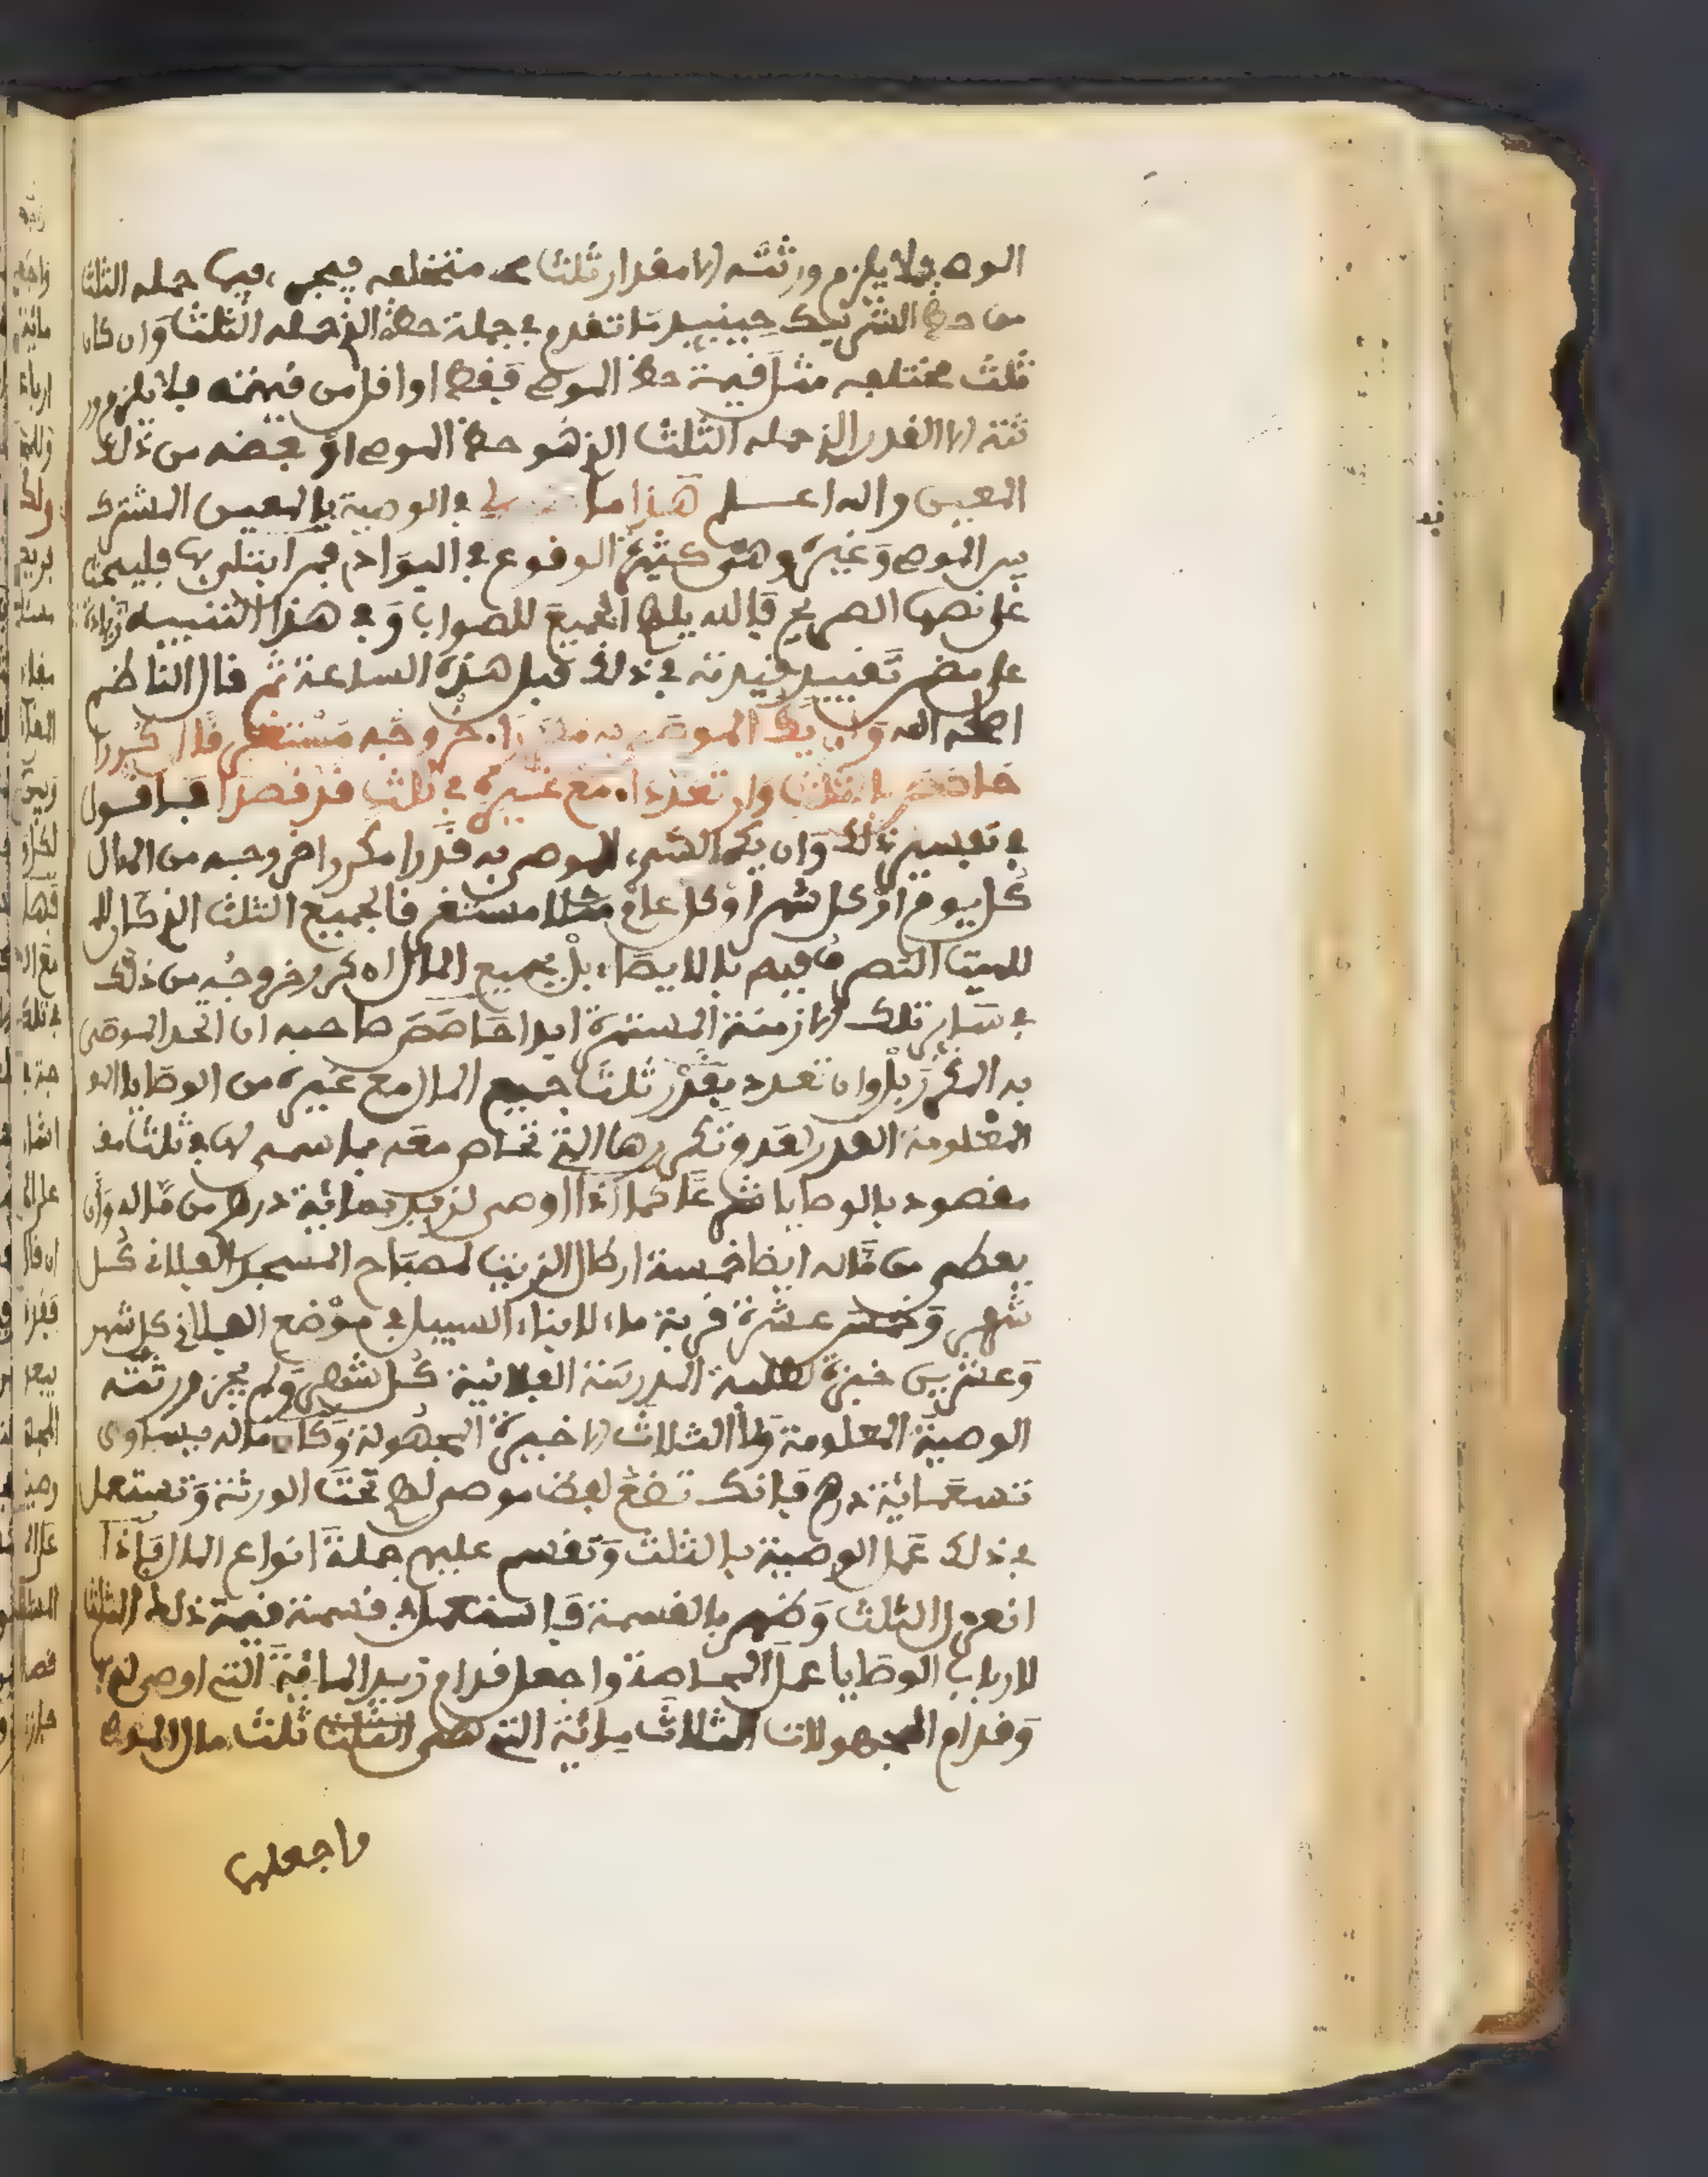 الموصي فلا يلزم ورثته الا مقدار ثلث متخلفه فيجري فيما حمله الثلث
من حظ الشريك حينئذ ما تقدم في جملة حظه الذي حمله الثلث وان كان
ثلث مختلفه مثل قيمة حظ الموصي فقط او اقل من قيمته فلا يلزم ور
ثته الا القدر الذي حمله الثلث الذي هو حظ الموصي او بعضه من ذلك
المعين والله اعلم هذا ما في الوصية بالمعين المشترك
بين الموصي وغيره وهي كثيرة الوقوع في البوادي فمن ابتلي بها فليبحث
على نصها الصريح فالله يلهم الجميع للصواب وفي هذا التنبيه زيادة
على مضي تقييد قيدته في ذلك قبل هذه الساعة ثم قال الناظم
اصلحه الله وان يك الموصى به خروجه مستغرقا كررا
حاصص بالثلث وان تعددا مع غيره في ثلث قد قصدا فاقول
في تفسير ذلك وان يكن الشيء الموصى به قدرا مكررا خروجه من المال
كل يوم او كل شهر او كل عام مثلا مستغرقا لجميع الثلث الذي كان لل
للميت التصرف فيه بالايصاء بل لجميع المال ان كرر خروجه من ذلك
في سائر تلك الازمنة المستمرة ابدا حاصص صاحبه ان اتحد الموصى
به المكرر بل وان تعدد بقدر ثلث جميع المال مع غيره من الوصايا الو
المعلومة القدر لعدم تكررها التي تحاص معه بما سمي لها في ثلث مف
مقصود بالوصايا شرعا كما اذا اوصى لزيد بمائة درهم من ماله وان
يعطى من ماله ايضا خمسة ارطال الزيت لمصباح المسجد الفلاني كل
شهر وخمس عشرة قربة ماء لابناء السبيل في موضع الفلاني كل شهر
وعشرين خبزة لطلبة المدرسة الفلانية كل شهر ولم يجز ورثته
الوصية المعلومة ولا الثلاث الاخيرة المجهولة وكان ماله يساوي
تسعمائة درهم فانك تضع لفظ موصى لهم تحت الورثة وتستعمل
في ذلك عمل الوصية بالثلث وتقسم عليهم جملة انواع المال فاذا
انعزل الثلث وظهر بالقسمة فاستعمل في قسمة قيمة ذلك الثلث
لارباب الوصايا عمل المحاصة واجعل قدام زيد المائة التي اوصى له بها
وقدام المجهولات الثلاث مائة التي هي الثلث ثلث مال الموصي
واجعلها